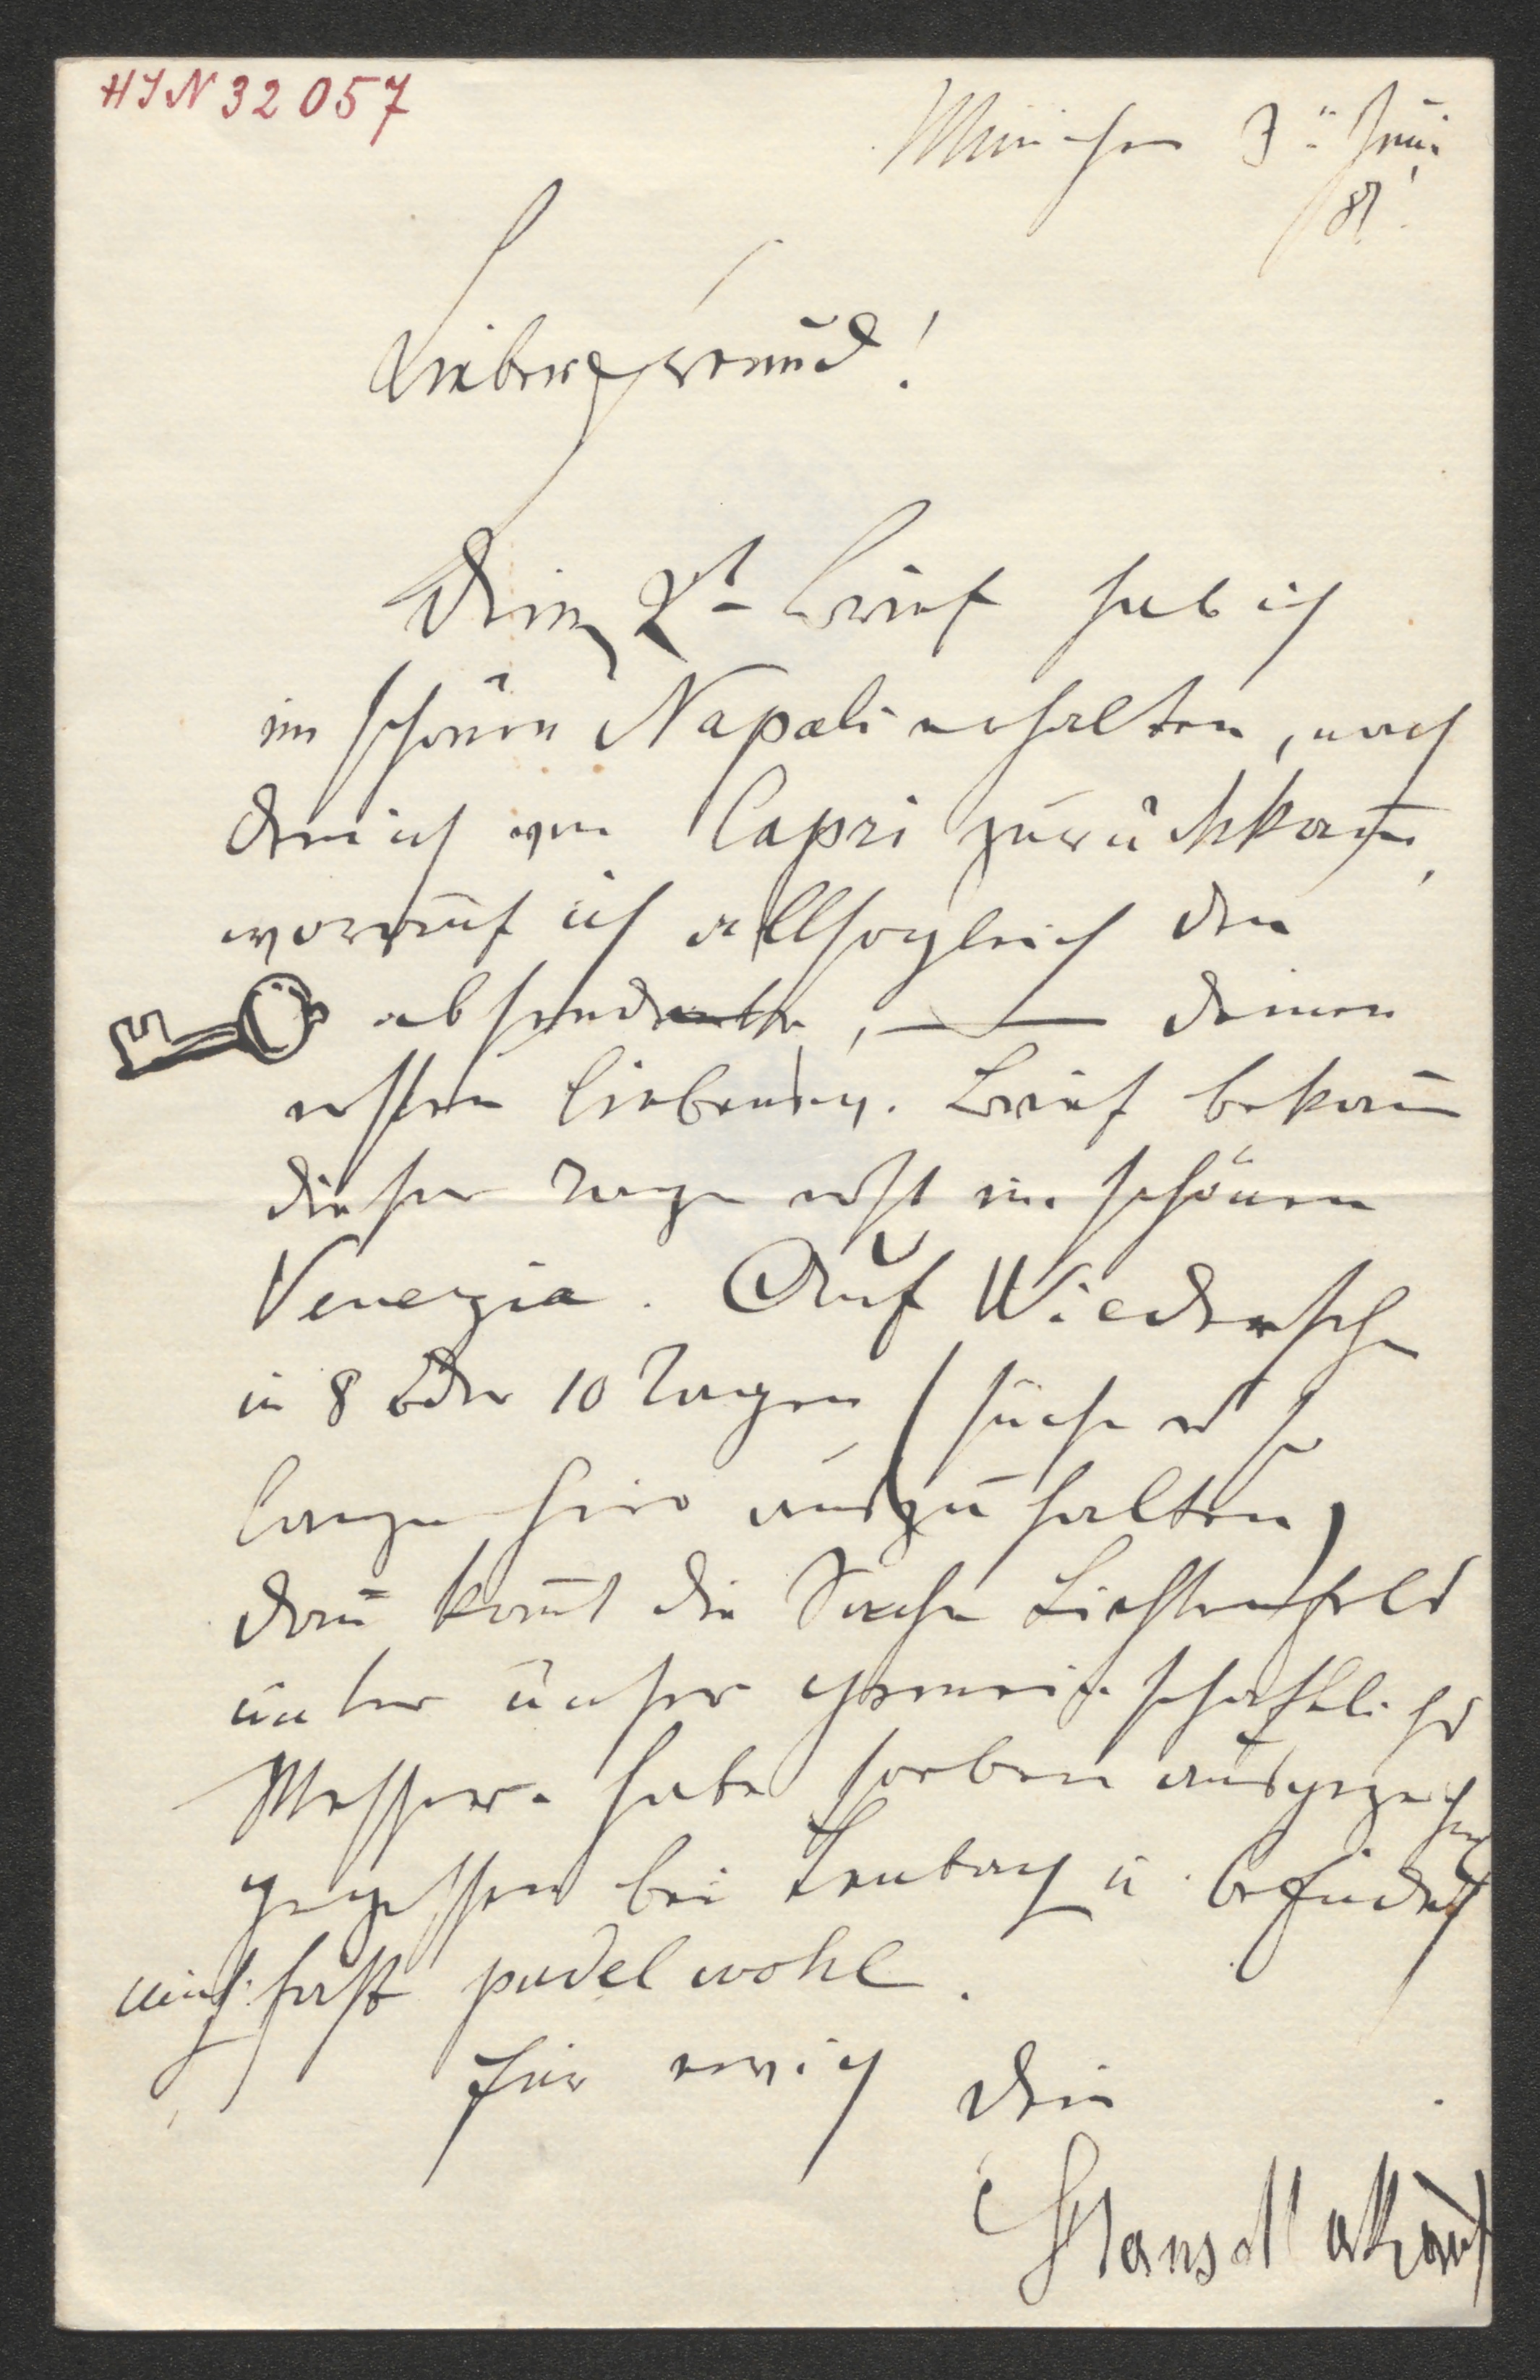 HIN 32057
München 3ten Juni
81.
Lieber Freund!
Dein 2t Brief hab ich
im schönen Napoli erhalten, nach
dem ich von Capri zurückkam̅,
worauf ich allsogleich den
absendete, — deinen
ersten liebensw. Brief bekam̅
dieser Tage erst im schönen
Venezia. Auf Wiedersehn
in 8 oder 10 Tagen (suche es so
lange hier auszuhalten)
dan̅ kom̅t die Sache Lichtenfeld
unter unser gemeinschaftliches
Messer. habe soeben ausgezeichnet
gegessen bei Lenbach u. befinde
mich fast pudelwohl.
Für ewig Dein
Hans Makart